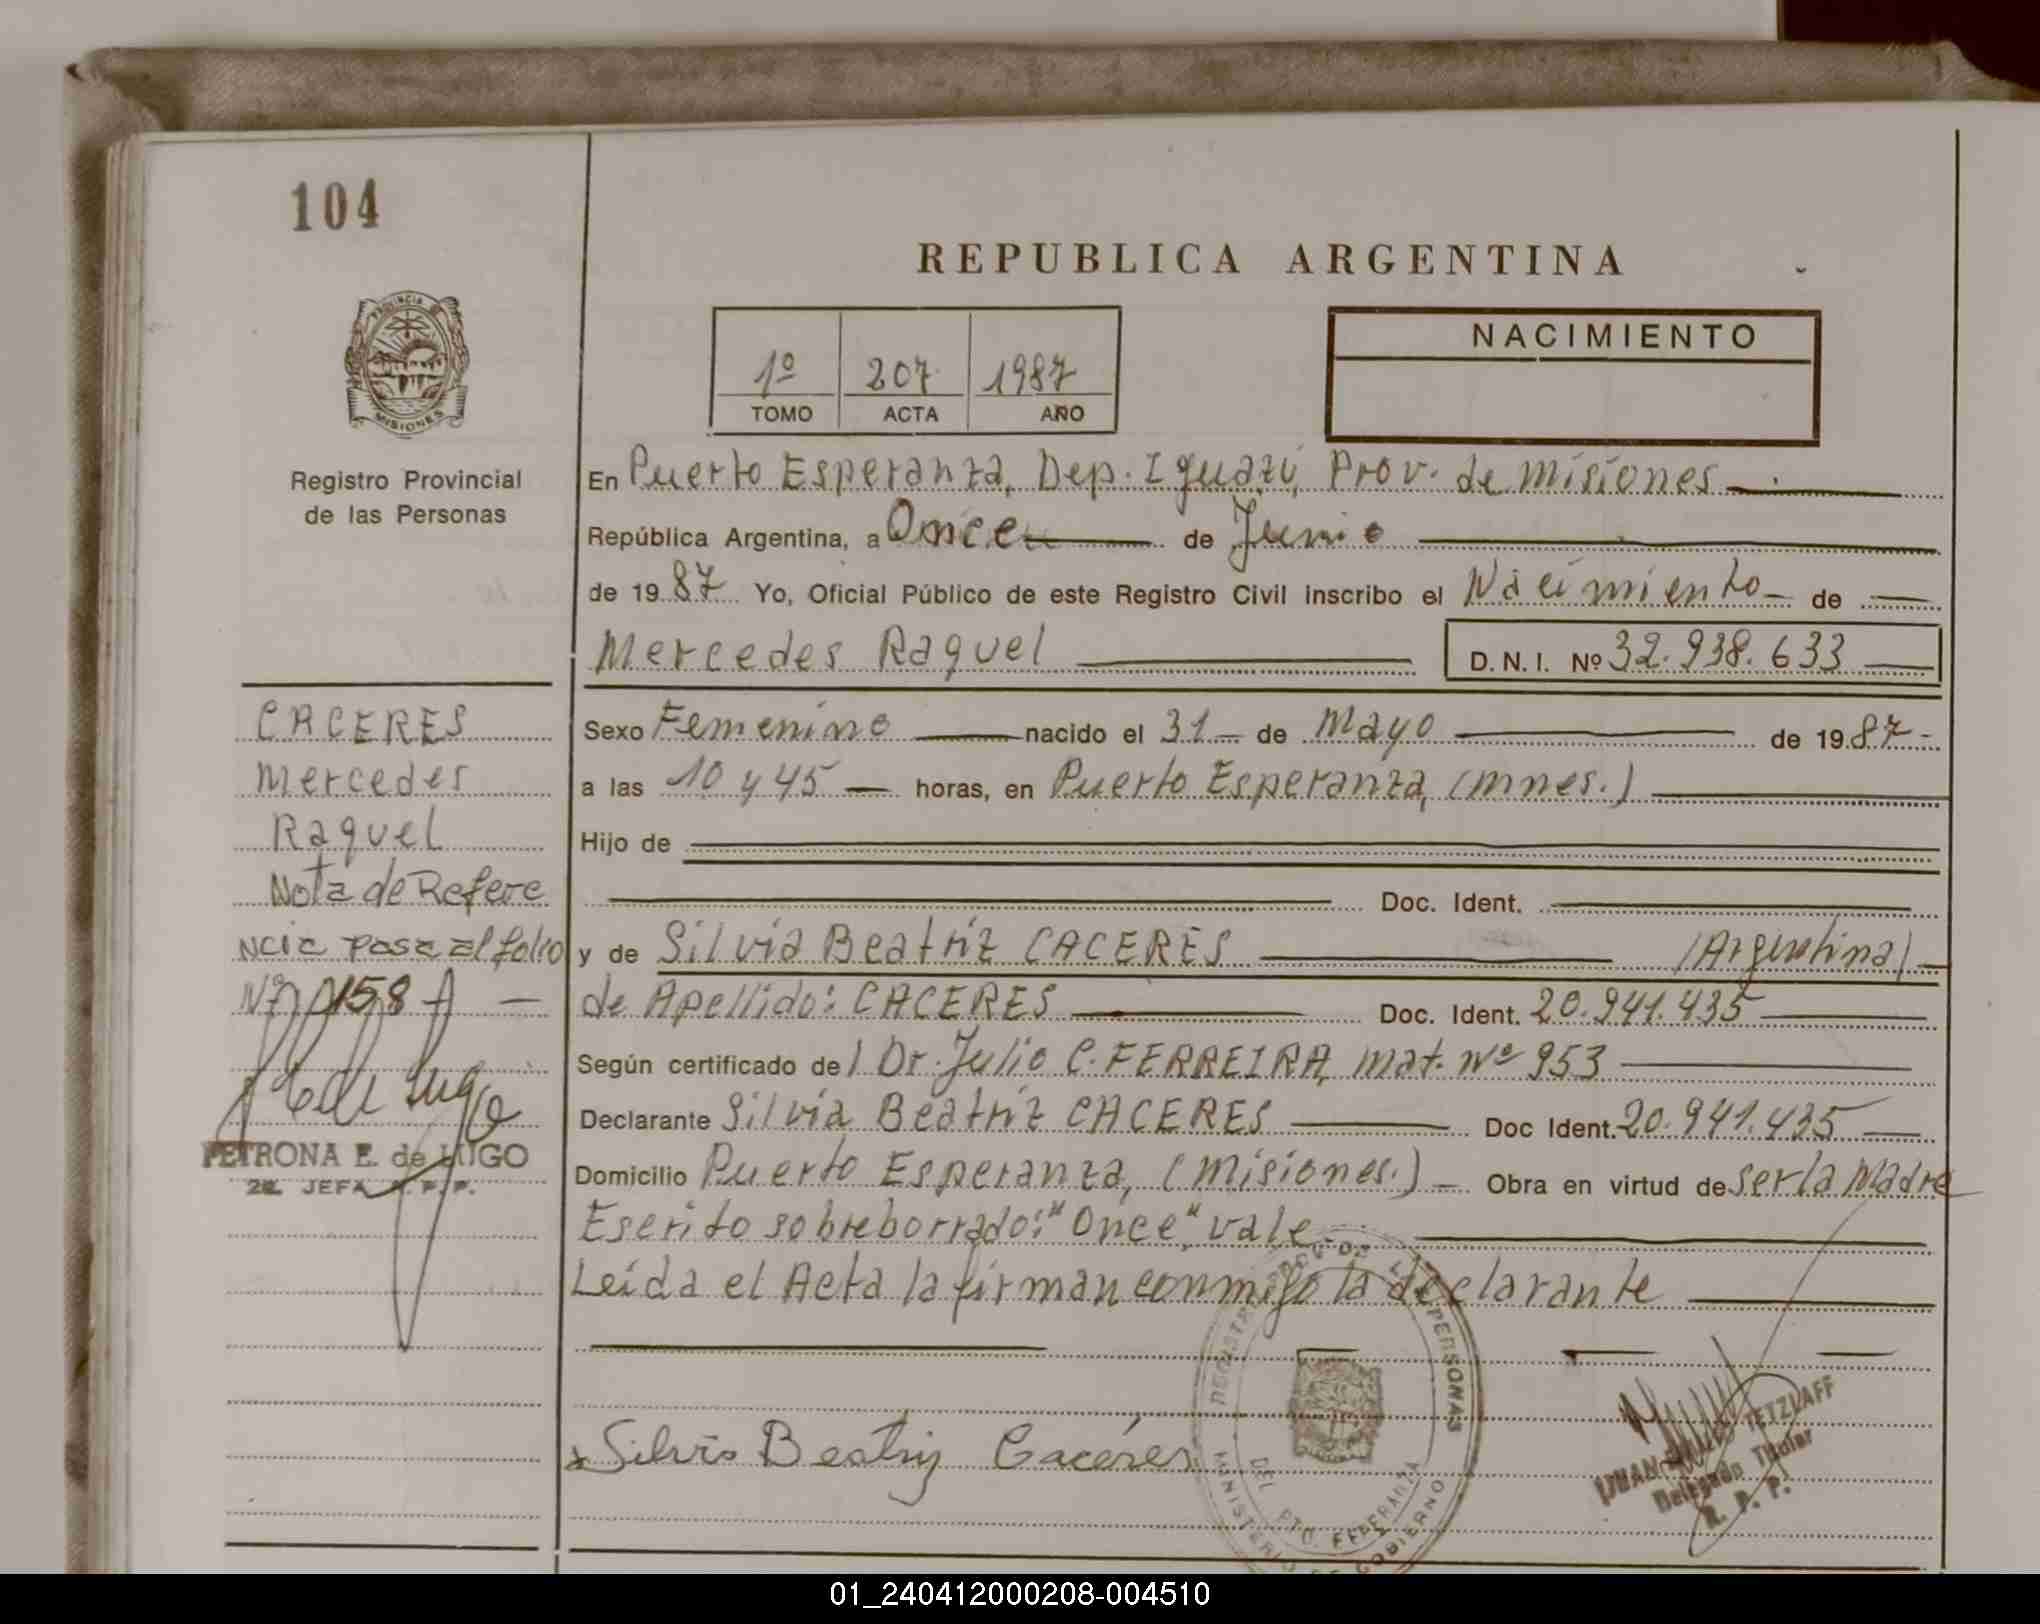 104
REPUBLICA ARGENTINA
PROVINCIA DE
MISIONES
Registro Provincial
de las Personas
1º 207 1987
TOMO ACTA AÑO
NACIMIENTO
En Puerto Esperanza, Dep. Iguazú, Prov. de Misiones
República Argentina, a Once de Junio
de 1987 Yo, Oficial Público de este Registro Civil inscribo el Nacimiento de
Mercedes Raquel
D.N.I. Nº 32.938.633
CACERES
Mercedes
Raquel
Nota de Refere
ncia pasa al folio
Nº 158
PETRONA E. de LUGO
2a. JEFA R.P.P.
Sexo Femenino nacido el 31 de Mayo de 1987
a las 10 y 45 horas, en Puerto Esperanza, (Mnes.)
Hijo de
Doc. Ident.
y de Silvia Beatriz CACERES (Argentina)
de Apellido: CACERES Doc. Ident. 20.941.435
Según certificado del Dr. Julio C. FERREIRA, Mat. Nº 953
Declarante Silvia Beatriz CACERES Doc Ident. 20.941.435
Domicilio Puerto Esperanza, (Misiones.) Obra en virtud de ser la Madre
Escrito sobreborrado: "Once", vale
Leída el Acta la firman conmigo la declarante
Silvia Beatriz Caceres
PERSONAS
DEL PTO. ESPERANZA
MINISTERIO DE GOBIERNO
TETZLAFF
Delegado Titular
R. P. P.
01_240412000208-004510